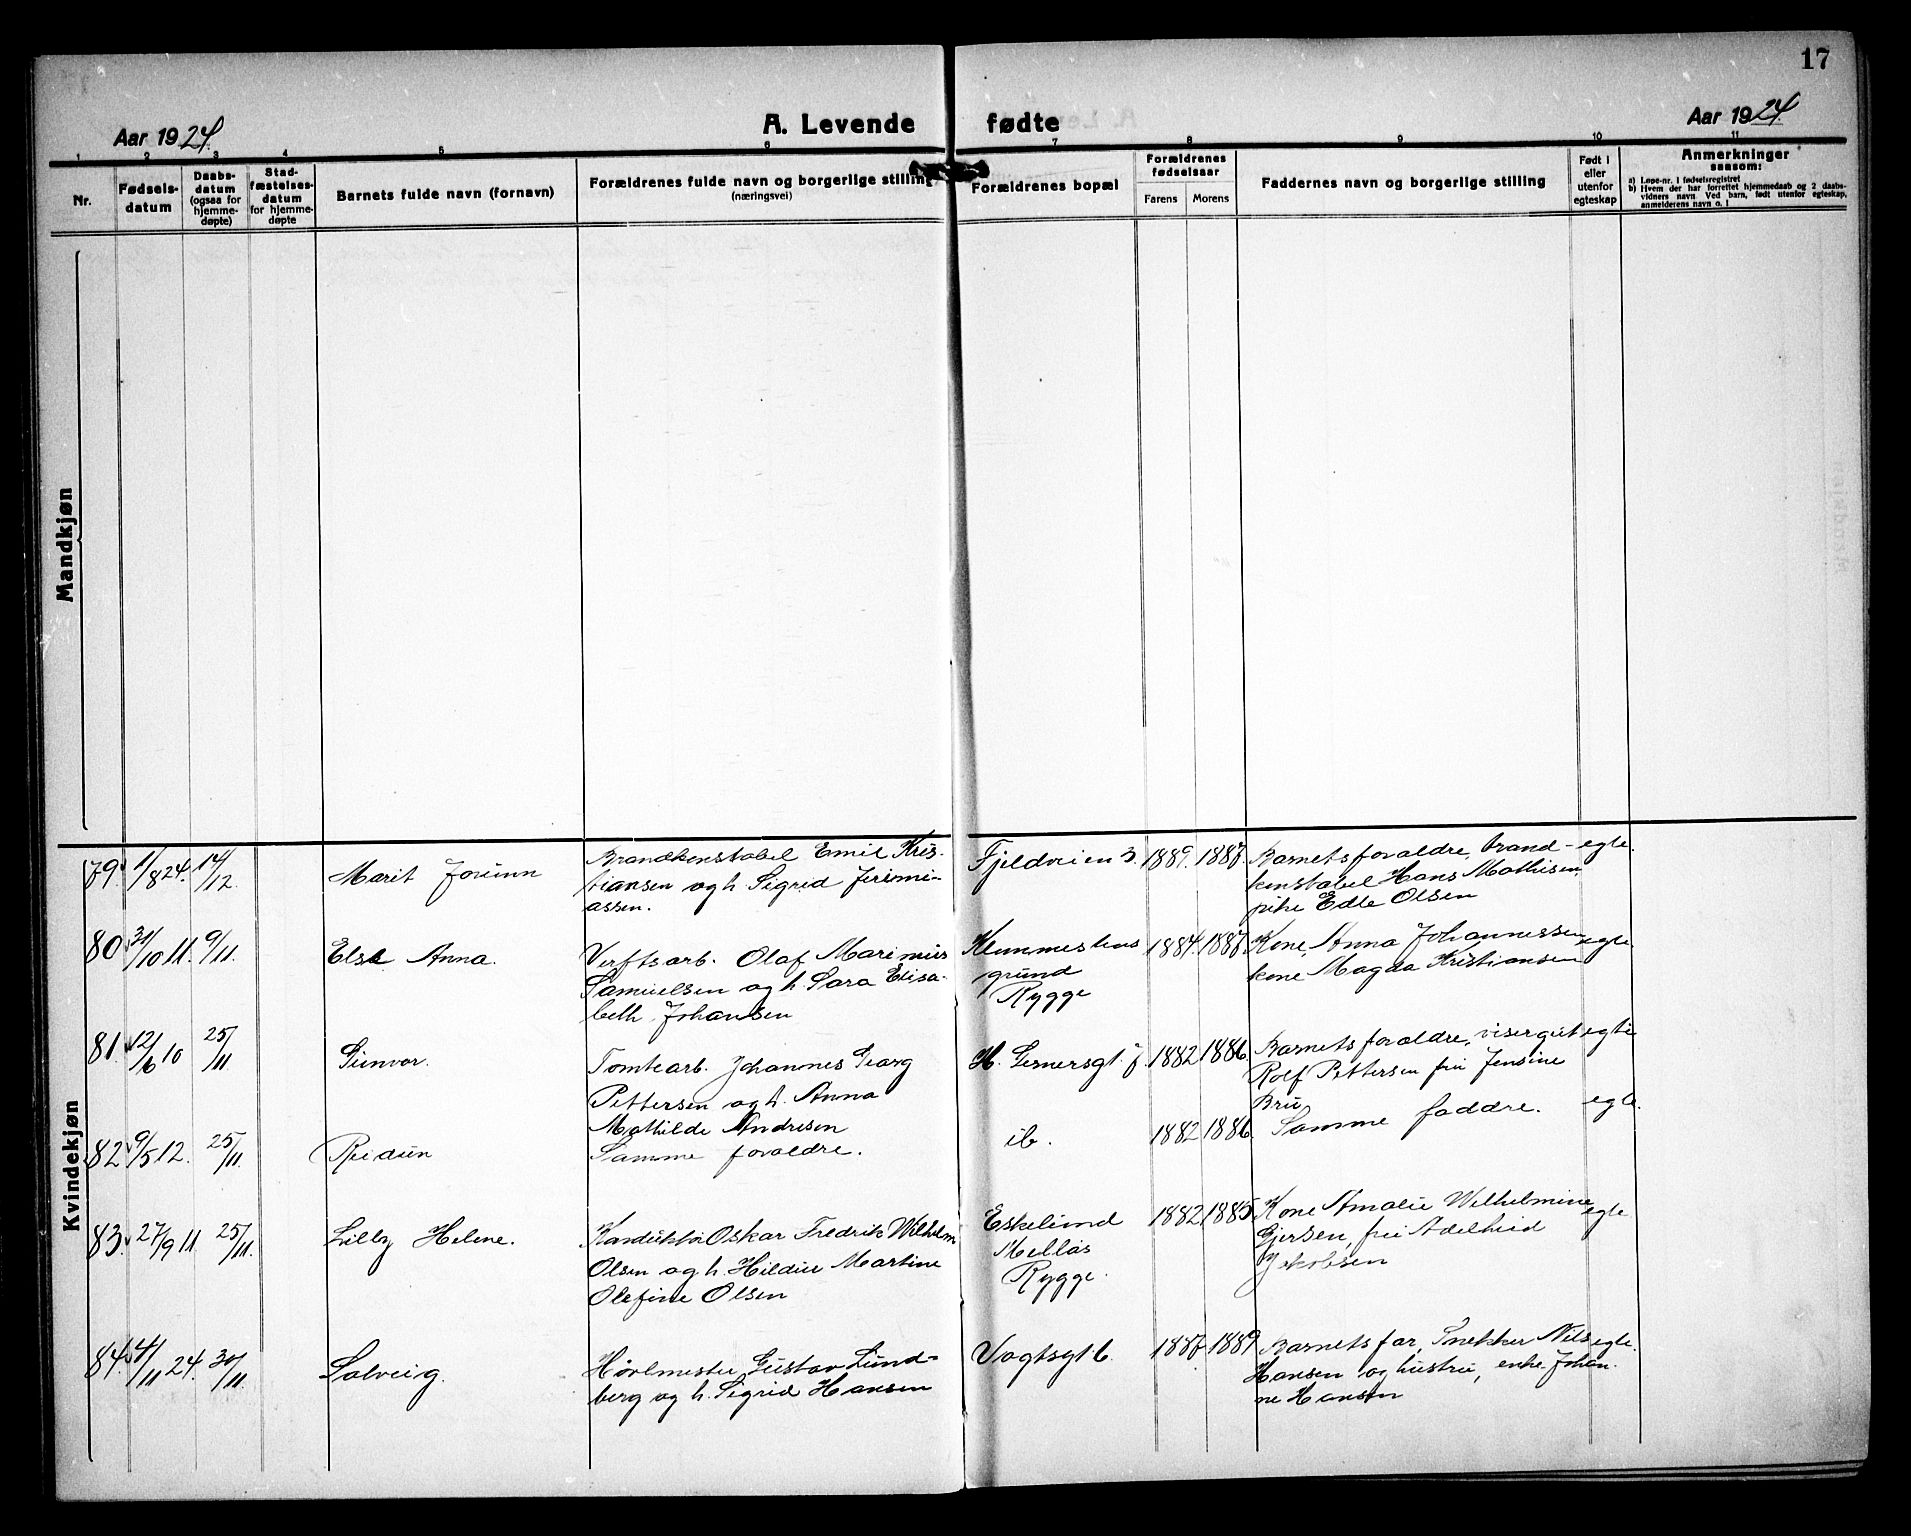 17
Aar 1924.
A. Levende fødte
Aar 1924.
1 2 3 4 5 6 7 8 9 10 11
Nr.
Fødsels-
datum
Daabs-
datum
(ogsaa for
hjemme-
døpte)
Stad-
fæstelses-
datum
for hjemme-
døpte
Barnets fulde navn (fornavn)
Forældrenes fulde navn og borgerlige stilling
(næringsvei)
Forældrenes bopæl
Forældrenes
fødselsaar
Farens
Morens
Faddernes navn og borgerlige stilling
Født i
eller
utenfor
egteskap
Anmerkninger
saasom:
a) Løpe-nr. i fødselsregistret
b) Hvem der har forrettet hjemmedaab og 2 daabs-
vidners navn Ved barn, født utenfor egteskap,
anmelderens navn o. l
Mandkjøn
Kvindekjøn
79. 1/8 24. 14/12
Marit Jorunn
Brandkonstabel Emil Kris-
tiansen og h. Sigrid Jeremi-
assen.
Fjeldveien 3. 1889. 1887.
Barnets forældre, brand-
konstabel Hans Mathisen,
pike Edle Olsen
egte.
80 31/10 11. 9/11.
Else Anna.
Verftsarb. Olaf Marinius
Samuelsen og h. Sara Elisa-
beth Johansen
grund
Rygge
1884. 1887.
Kone Anna Johannessen
kone Magda Kristiansen
egte.
81. 12/6 10 25/11.
Gunvor.
Tomtearb. Johannes Georg
Pettersen og h. Anna
Mathilde Andresen
H. Gernersgt. 7. 1882 1886.
Barnets forældre, visergut
Rolf Pettersen frk Jensine
Bru
egte
82 9/5 12. 25/11.
Reidun
Samme forældre.
ib.
1882 1886.
Samme faddre.
egte.
83. 27/9 11 25/11.
Lilly Helene.
Konduktør Oskar Fredrik Wilhelm
Olsen og h. Hildur Martine
Olefine Olsen
Eskelund
Melløs
Rygge.
1882 1885
Kone Amalie Wilhelmine
Gjersen, frk Adelheid
Jakobsen
egte
84. 4/11 24. 30/11.
Solveig.
Høvlmester Gustav Lund-
berg og h. Sigrid Hansen
Vogtsgt 6. 1887 1889
Barnets far, Snekker Nils
Hansen og hustru, enke Johan-
ne Hansen
egte.